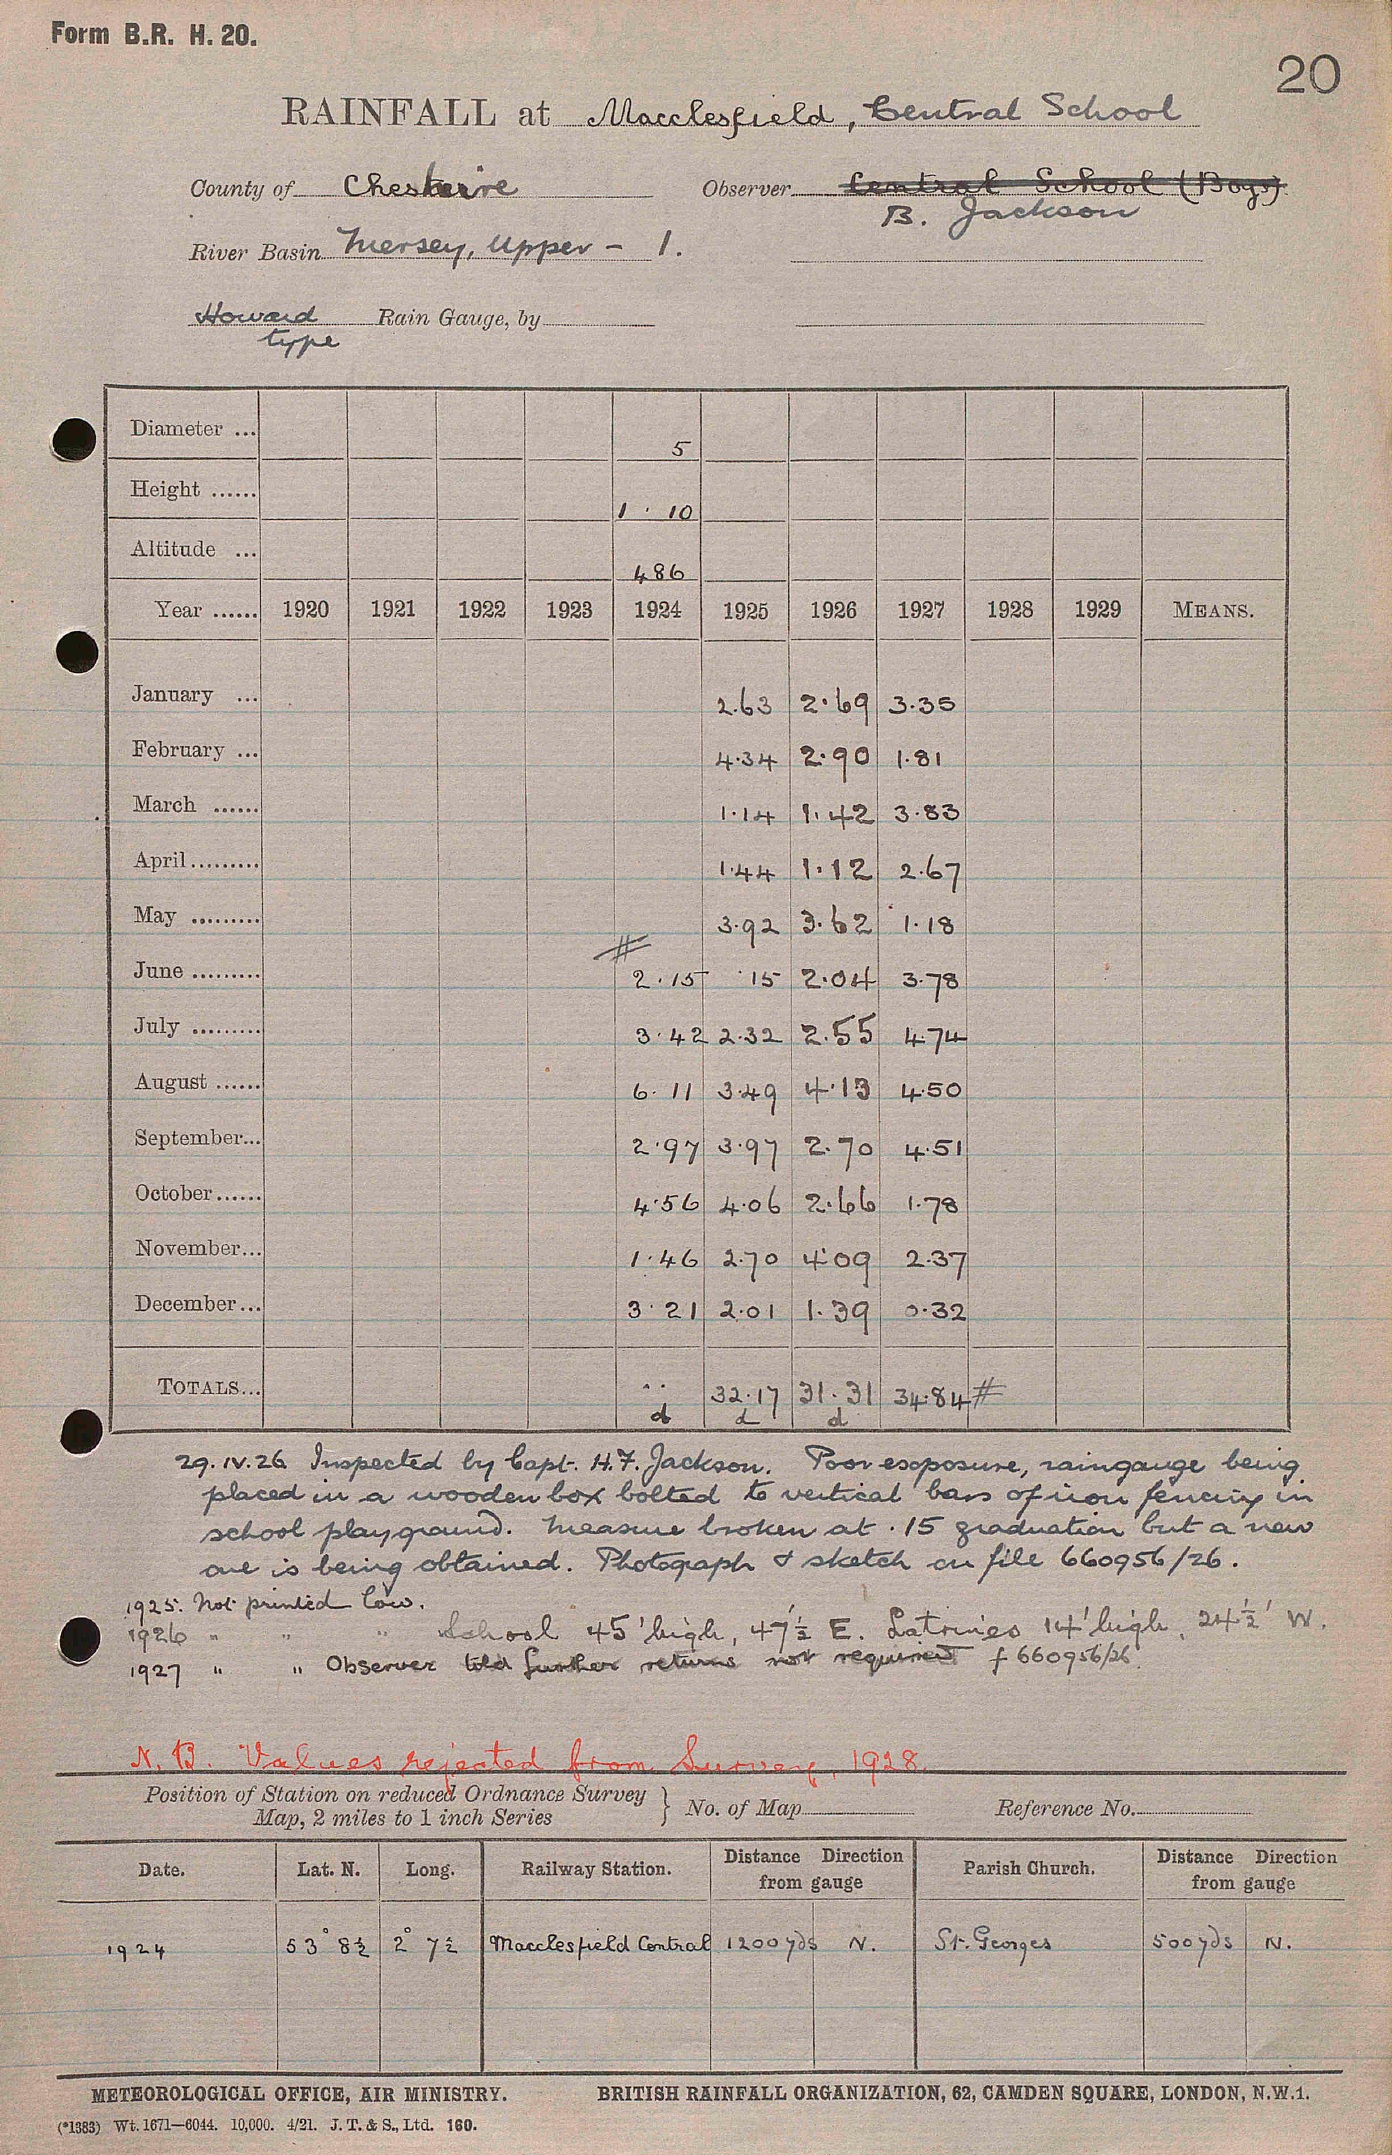 Form B.R. H. 20.
20
RAINFALL at Macclesfield, Central School
County of Cheshire Observer Central School (Boys)
B. Jackson
River Basin Mersey, Upper - 1.
Howard type Rain Gauge, by
Diameter ... 5
Height ...... 1 · 10
Altitude ... 486
Year ...... 1920 1921 1922 1923 1924 1925 1926 1927 1928 1929 MEANS.
January ... 2.63 2.69 3.35
February ... 4.34 2.90 1.81
March ...... 1.14 1.42 3.83
April ......... 1.44 1.12 2.67
May ......... 3.92 3.62 1.18
#
June ......... 2.15 .15 2.04 3.78
July ......... 3.42 2.32 2.55 4.74
August ...... 6.11 3.49 4.13 4.50
September... 2.97 3.97 2.70 4.51
October ...... 4.56 4.06 2.66 1.78
November... 1.46 2.70 4.09 2.37
December... 3.21 2.01 1.39 0.32
TOTALS... .. 32.17 31.31 34.84 #
d d d
29.IV.26 Inspected by Capt. H.F. Jackson. Poor exposure, raingauge being
placed in a wooden box bolted to vertical bars of iron fencing in
school playground. Measure broken at .15 graduation but a new
one is being obtained. Photograph & sketch on file 660956/26.
1925. Not printed low.
1926 " " " School 45' high, 47½' E. Latrines 14' high, 24½' W.
1927 " " Observer told further returns not required f 660956/26
N.B. Values rejected from Survey, 1928.
Position of Station on reduced Ordnance Survey
Map, 2 miles to 1 inch Series } No. of Map Reference No.
Date. Lat. N. Long. Railway Station. Distance Direction from gauge Parish Church. Distance Direction from gauge
1924 53° 8½ 2° 7½ Macclesfield Central 1200 yds N. St. Georges 500 yds N.
METEOROLOGICAL OFFICE, AIR MINISTRY. BRITISH RAINFALL ORGANIZATION, 62, CAMDEN SQUARE, LONDON, N.W.1.
(*1383) Wt. 1671—6044. 10,000. 4/21. J. T. & S., Ltd. 160.